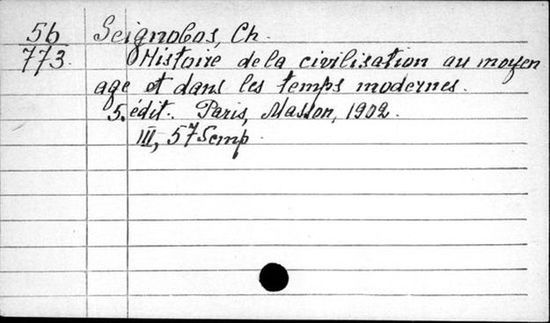 56 Seignobos, Ch.
773. Histoire de la civilisation au moyen
age et dans les temps modernes.
5. édit. Paris, Masson, 1902.
III, 57